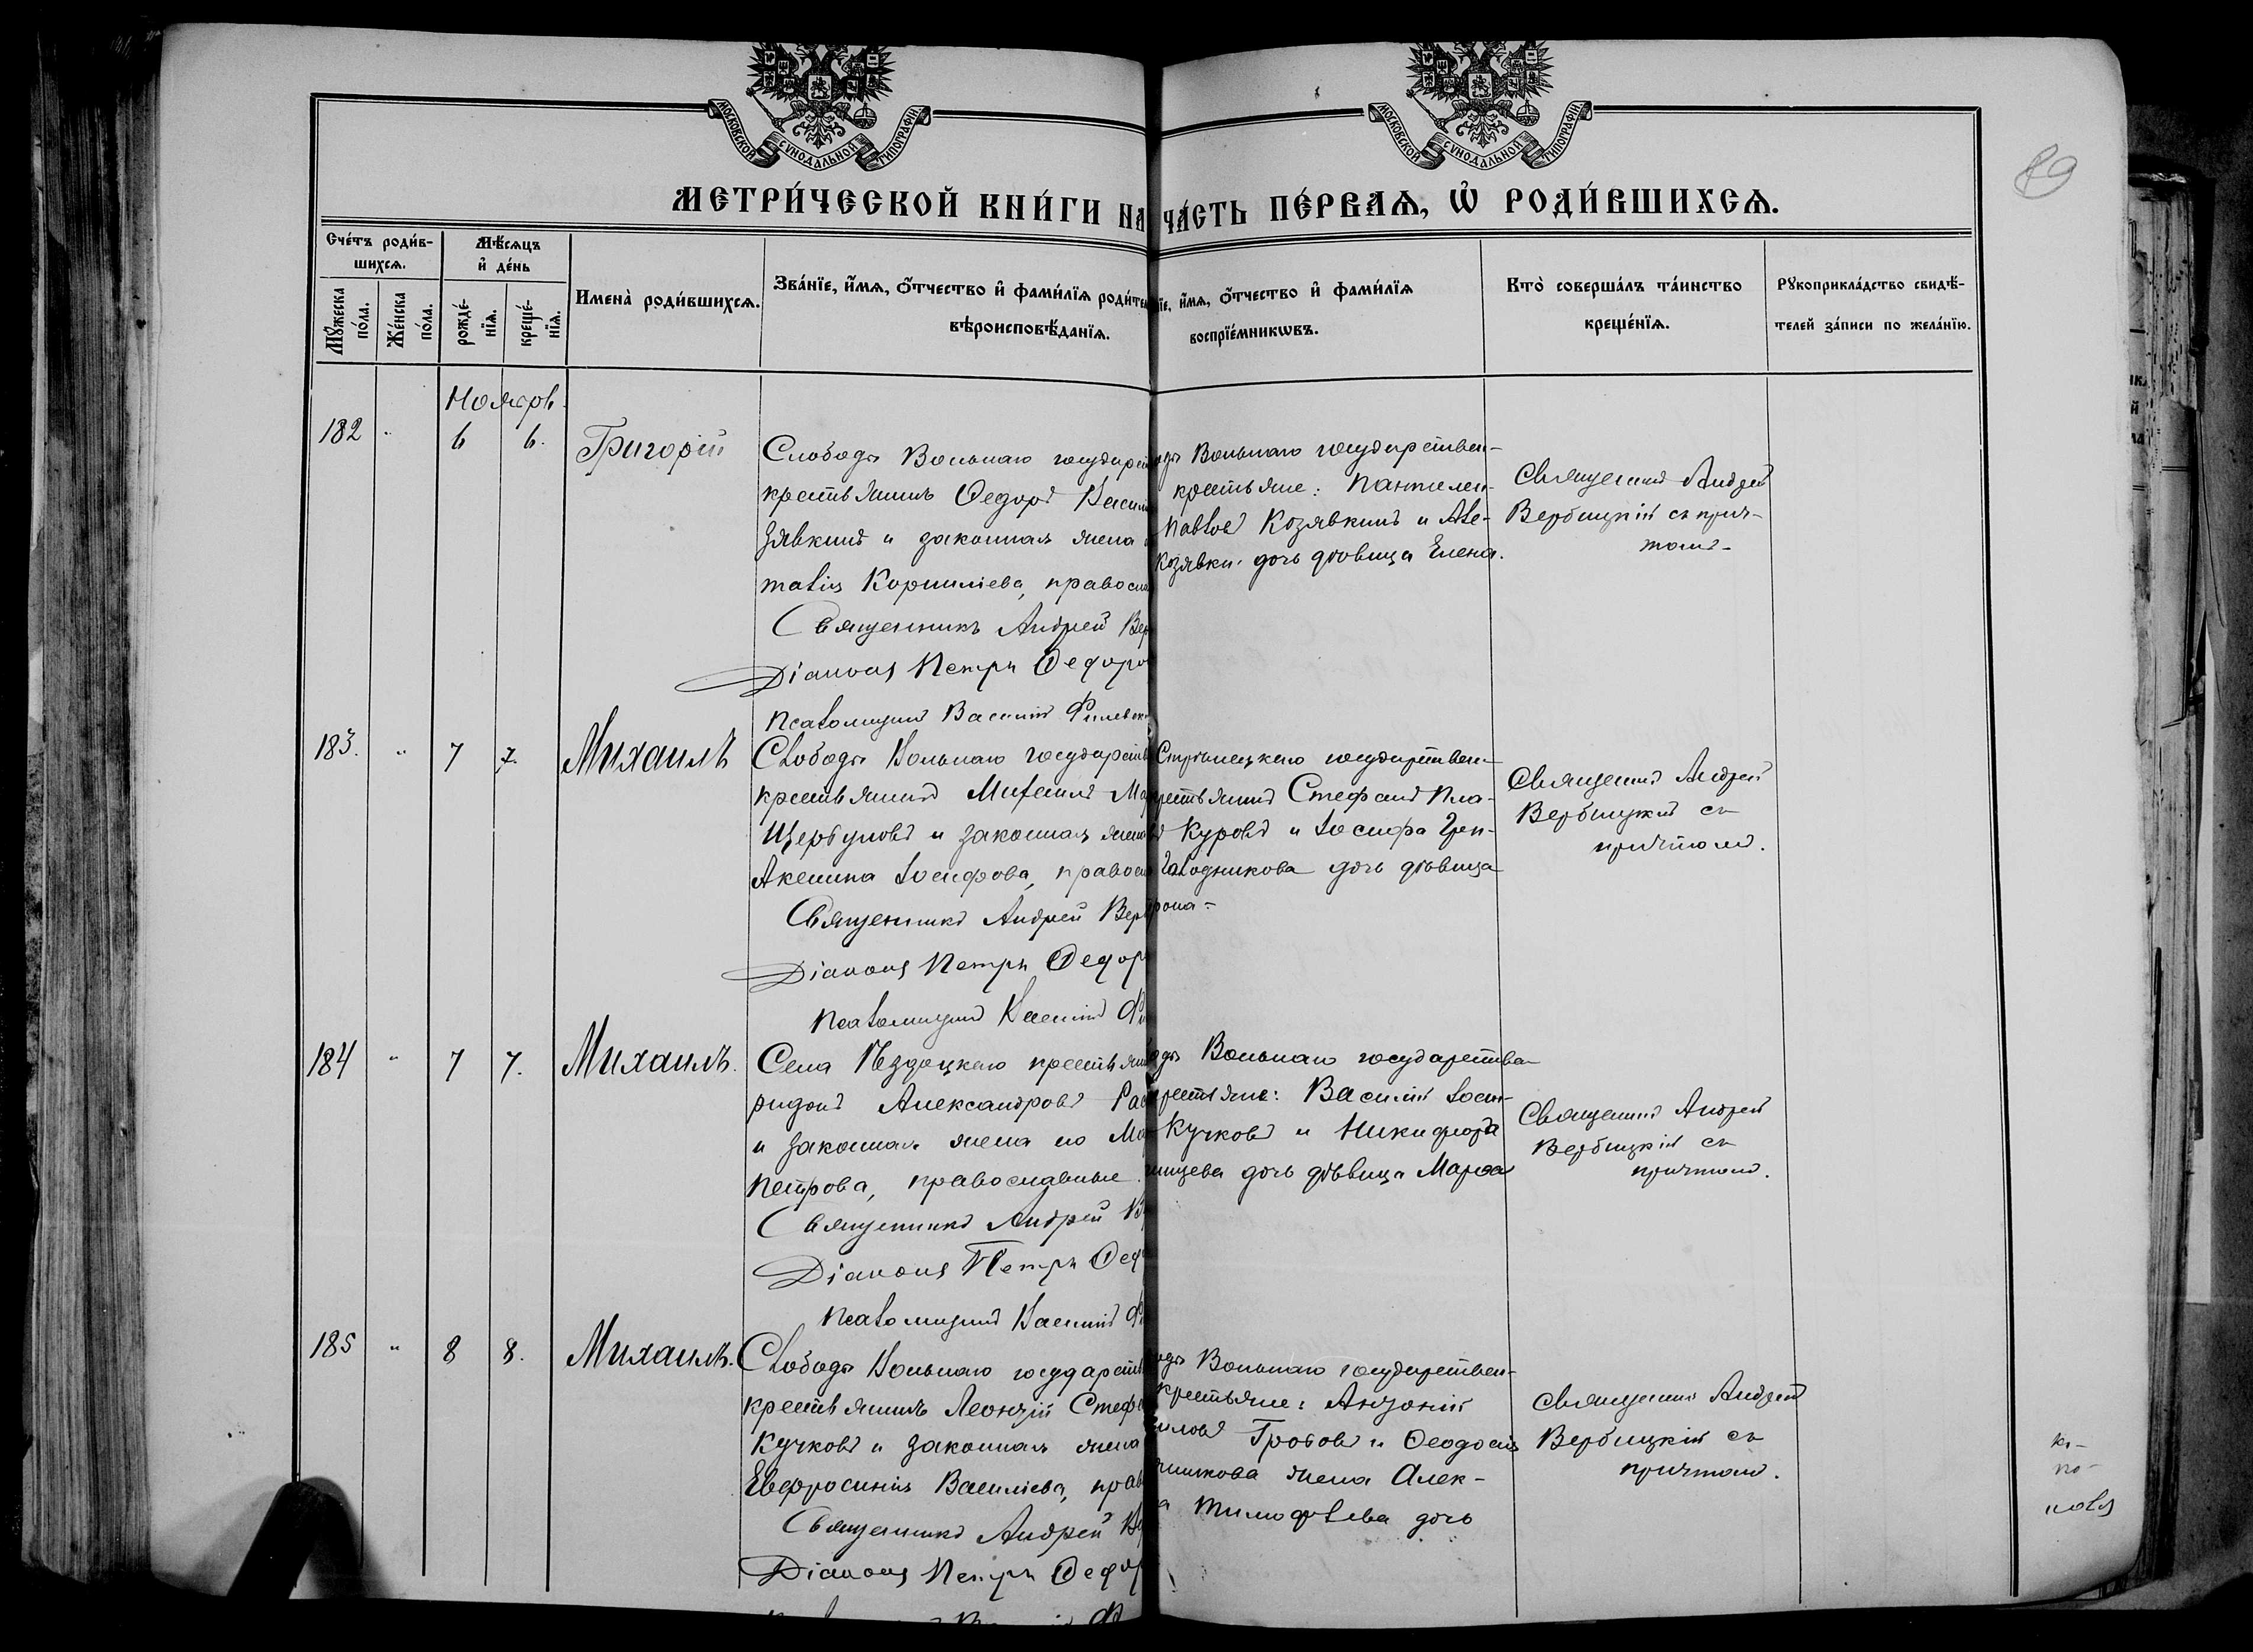 МОСКОВСКОЙ СѴНОДАЛЬНОЙ ТИПОГРАФІИ.
МОСКОВСКОЙ СѴНОДАЛЬНОЙ ТИПОГРАФІИ.
89
МЕТРИ́ЧЕСКОЙ КНИ́ГИ НА
ЧА́СТЬ ПЕ́РВАѦ, Ѡ҆ РОДИ́ВШИХСѦ.
Сче́тъ роди́в-
шихсѧ.
Мѣ́сѧцъ
и҆ де́нь
Мꙋ́жеска
по́ла.
Же́нска
по́ла.
рожде́-
нїѧ.
креще́-
нїѧ.
Имена̀ роди́вшихсѧ.
Зва́нїе, и҆́мѧ, ѻ҆́тчество и҆ фами́лїѧ роди́те
вѣроисповѣ́данїѧ.
їе, и҆́мѧ, ѻ҆́тчество и҆ фами́лїѧ
воспрїе́мникѡвъ.
Кто̀ соверша́лъ та́инство
креще́нїѧ.
Рꙋкоприкла́дство свидѣ́-
телей за́писи по жела́нїю.
Ноябрь
182 " 6 6. Григорій
Слободы Вольнаго государств
крестьянинъ Ѳедоръ Васил
зявкинъ и законная жена
талія Корниліева, правосла
Священникъ Андрей Вер
Діаконъ Петръ Ѳедоро
Псаломщикъ Василій Филевск
Вольнаго государствен-
крестьяне: Пантелей-
Павловъ Козявкинъ и Але-
Козявки. дочь дѣвица Елена.
Священникъ Андрей
Вербицкій съ прич-
томъ-
183. " 7 7. Михаилъ
Слободы Вольнаго государств
крестьянинъ Михаилъ Ма
Щербуновъ и законная жена
Аксинія Іосифова, правосл
Священникъ Андрей Верб
Діаконъ Петръ Ѳедор
Псаломщикъ Василій Фи
Стрѣлецкаго государствен-
крестьянинъ Стефанъ
Куровъ и Іосифа
дочь дѣвица
Священникъ Андрей
Вербицкій съ
причтомъ.
184 " 7 7. Михаилъ.
Села Ѣздоцкаго крестьян
ридонъ Александровъ
и законная жена его Ма
Петрова, православные.
Священникъ Андрей В
Діаконъ Петръ Ѳед
Псаломщикъ Василій Ф
Вольнаго государствен
крестьяне: Василій Іоси-
Кучковъ и Никифора
дочь дѣвица Марѳа
Священникъ Андрей
Вербицкій съ
причтомъ.
185 " 8 8. Михаилъ.
Слободы Вольнаго государств
крестьянинъ Леонтій Стеф
Кучковъ и законная жена
Евфросинія Василіева, прав
Священникъ Андрей В
Діаконъ Петръ Ѳедор
Вольнаго государствен-
крестьяне: Антоній
Гробовъ и Ѳеодосія
жена Алек-
Тимофѣева дочь
Священникъ Андрей
Вербицкій съ
причтомъ.